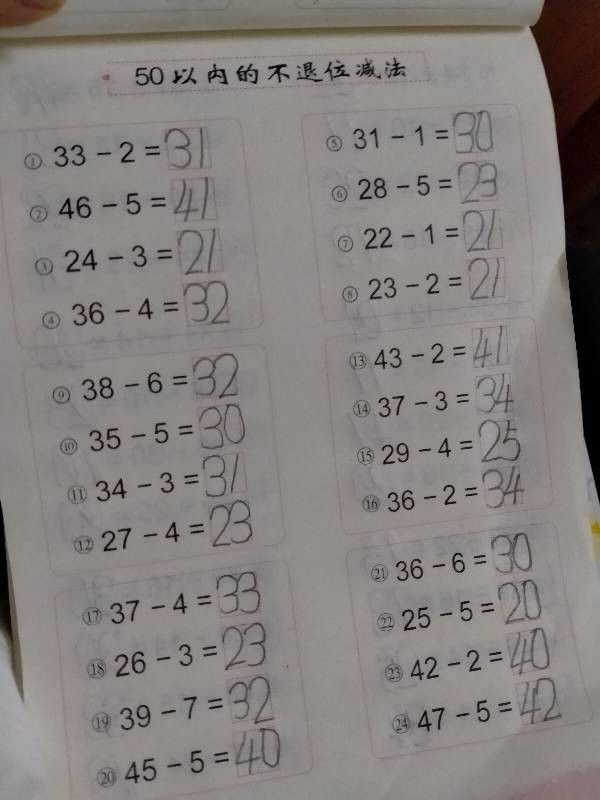 50以内的不退位减法
① 33 − 2 = 31
② 46 − 5 = 41
③ 24 − 3 = 21
④ 36 − 4 = 32
⑤ 31 − 1 = 30
⑥ 28 − 5 = 23
⑦ 22 − 1 = 21
⑧ 23 − 2 = 21
⑨ 38 − 6 = 32
⑩ 35 − 5 = 30
⑪ 34 − 3 = 31
⑫ 27 − 4 = 23
⑬ 43 − 2 = 41
⑭ 37 − 3 = 34
⑮ 29 − 4 = 25
⑯ 36 − 2 = 34
⑰ 37 − 4 = 33
⑱ 26 − 3 = 23
⑲ 39 − 7 = 32
⑳ 45 − 5 = 40
㉑ 36 − 6 = 30
㉒ 25 − 5 = 20
㉓ 42 − 2 = 40
㉔ 47 − 5 = 42